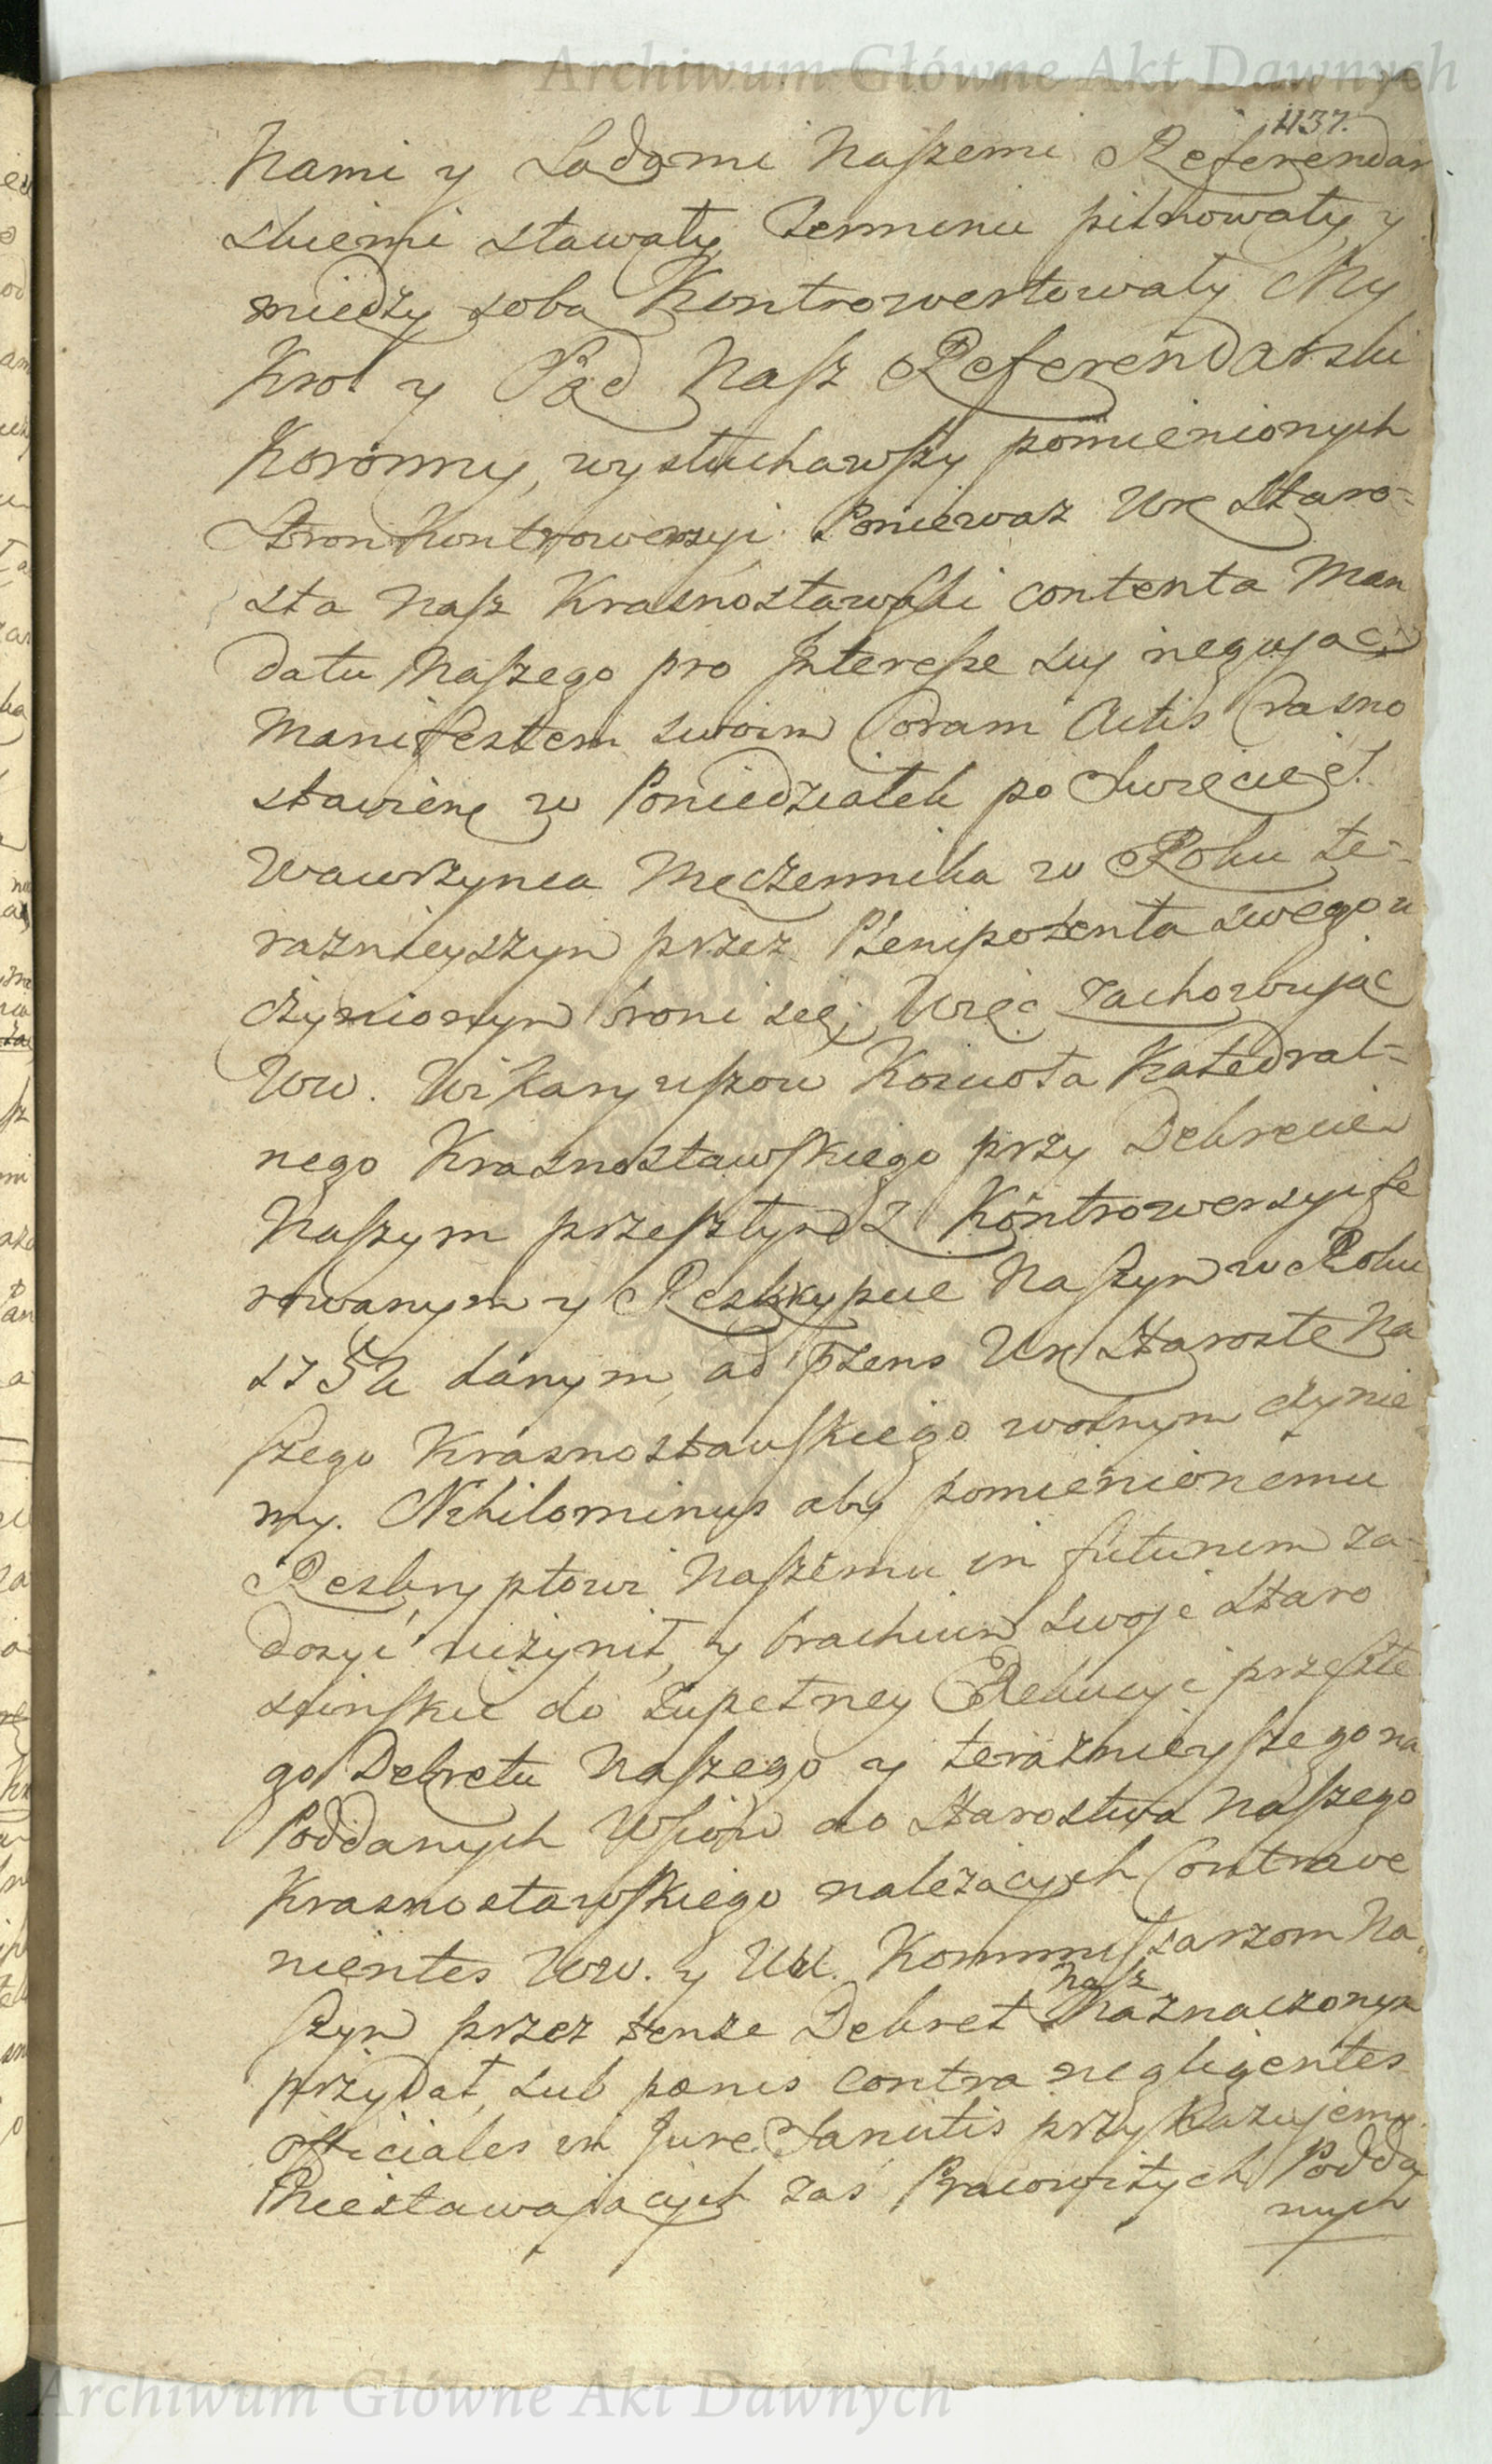 Archiwum Główne Akt Dawnych
1137.
Nami y Sądami Naszemi Referendar
skiemi stawały, Terminu pilnowały, y
między sobą Kontrowertowały My
Krol y Sąd Nasz Referendarski
Koronny, wysłuchawszy pomienionych
Stron Kontrowersyi. Ponieważ Ur. Staro-
sta Nasz Krasnostawski contenta Man
datu Naszego pro Interesse sui negując
Manifestem swoim Coram Actis Crasno
stavien. w Poniedziałek po Swięcie S.
Wawrzynca Męczennika w Roku te-
raznieyszym przez Plenipotenta swego u
czynionym broni się; Więc zachowując
Ww. Wikaryuszow Koscioła Katedral-
nego Krasnostawskiego przy Dekrecie
Naszym przeszłym z Kontrowersyi fe
rowanym y Reskrypcie Naszym w Roku
1752 danym, ad psens Ur. Starostę Na
szego Krasnostawskiego wolnym czynie
my. Nihilominus aby pomienionemu
Reskryptowi Naszemu in futurum za-
dosyć uczynił, y brachium swoje Staro
stinskie do zupełney Exekucyi przeszłe
go Dekretu Naszego y teraznieyszego na
Poddanych Wsiow do Starostwa Naszego
Krasnostawskiego należących Contrave
nientes Ww. y Uu. Kommissarzom Na
szym przez tenże Dekret Nasz Naznaczonym
przydał, sub pœnis contra negligentes
officiales in Jure Sancitis przykazujemy.
Niestawających zas Pracowitych Podda
nych
Archiwum Główne Akt Dawnych